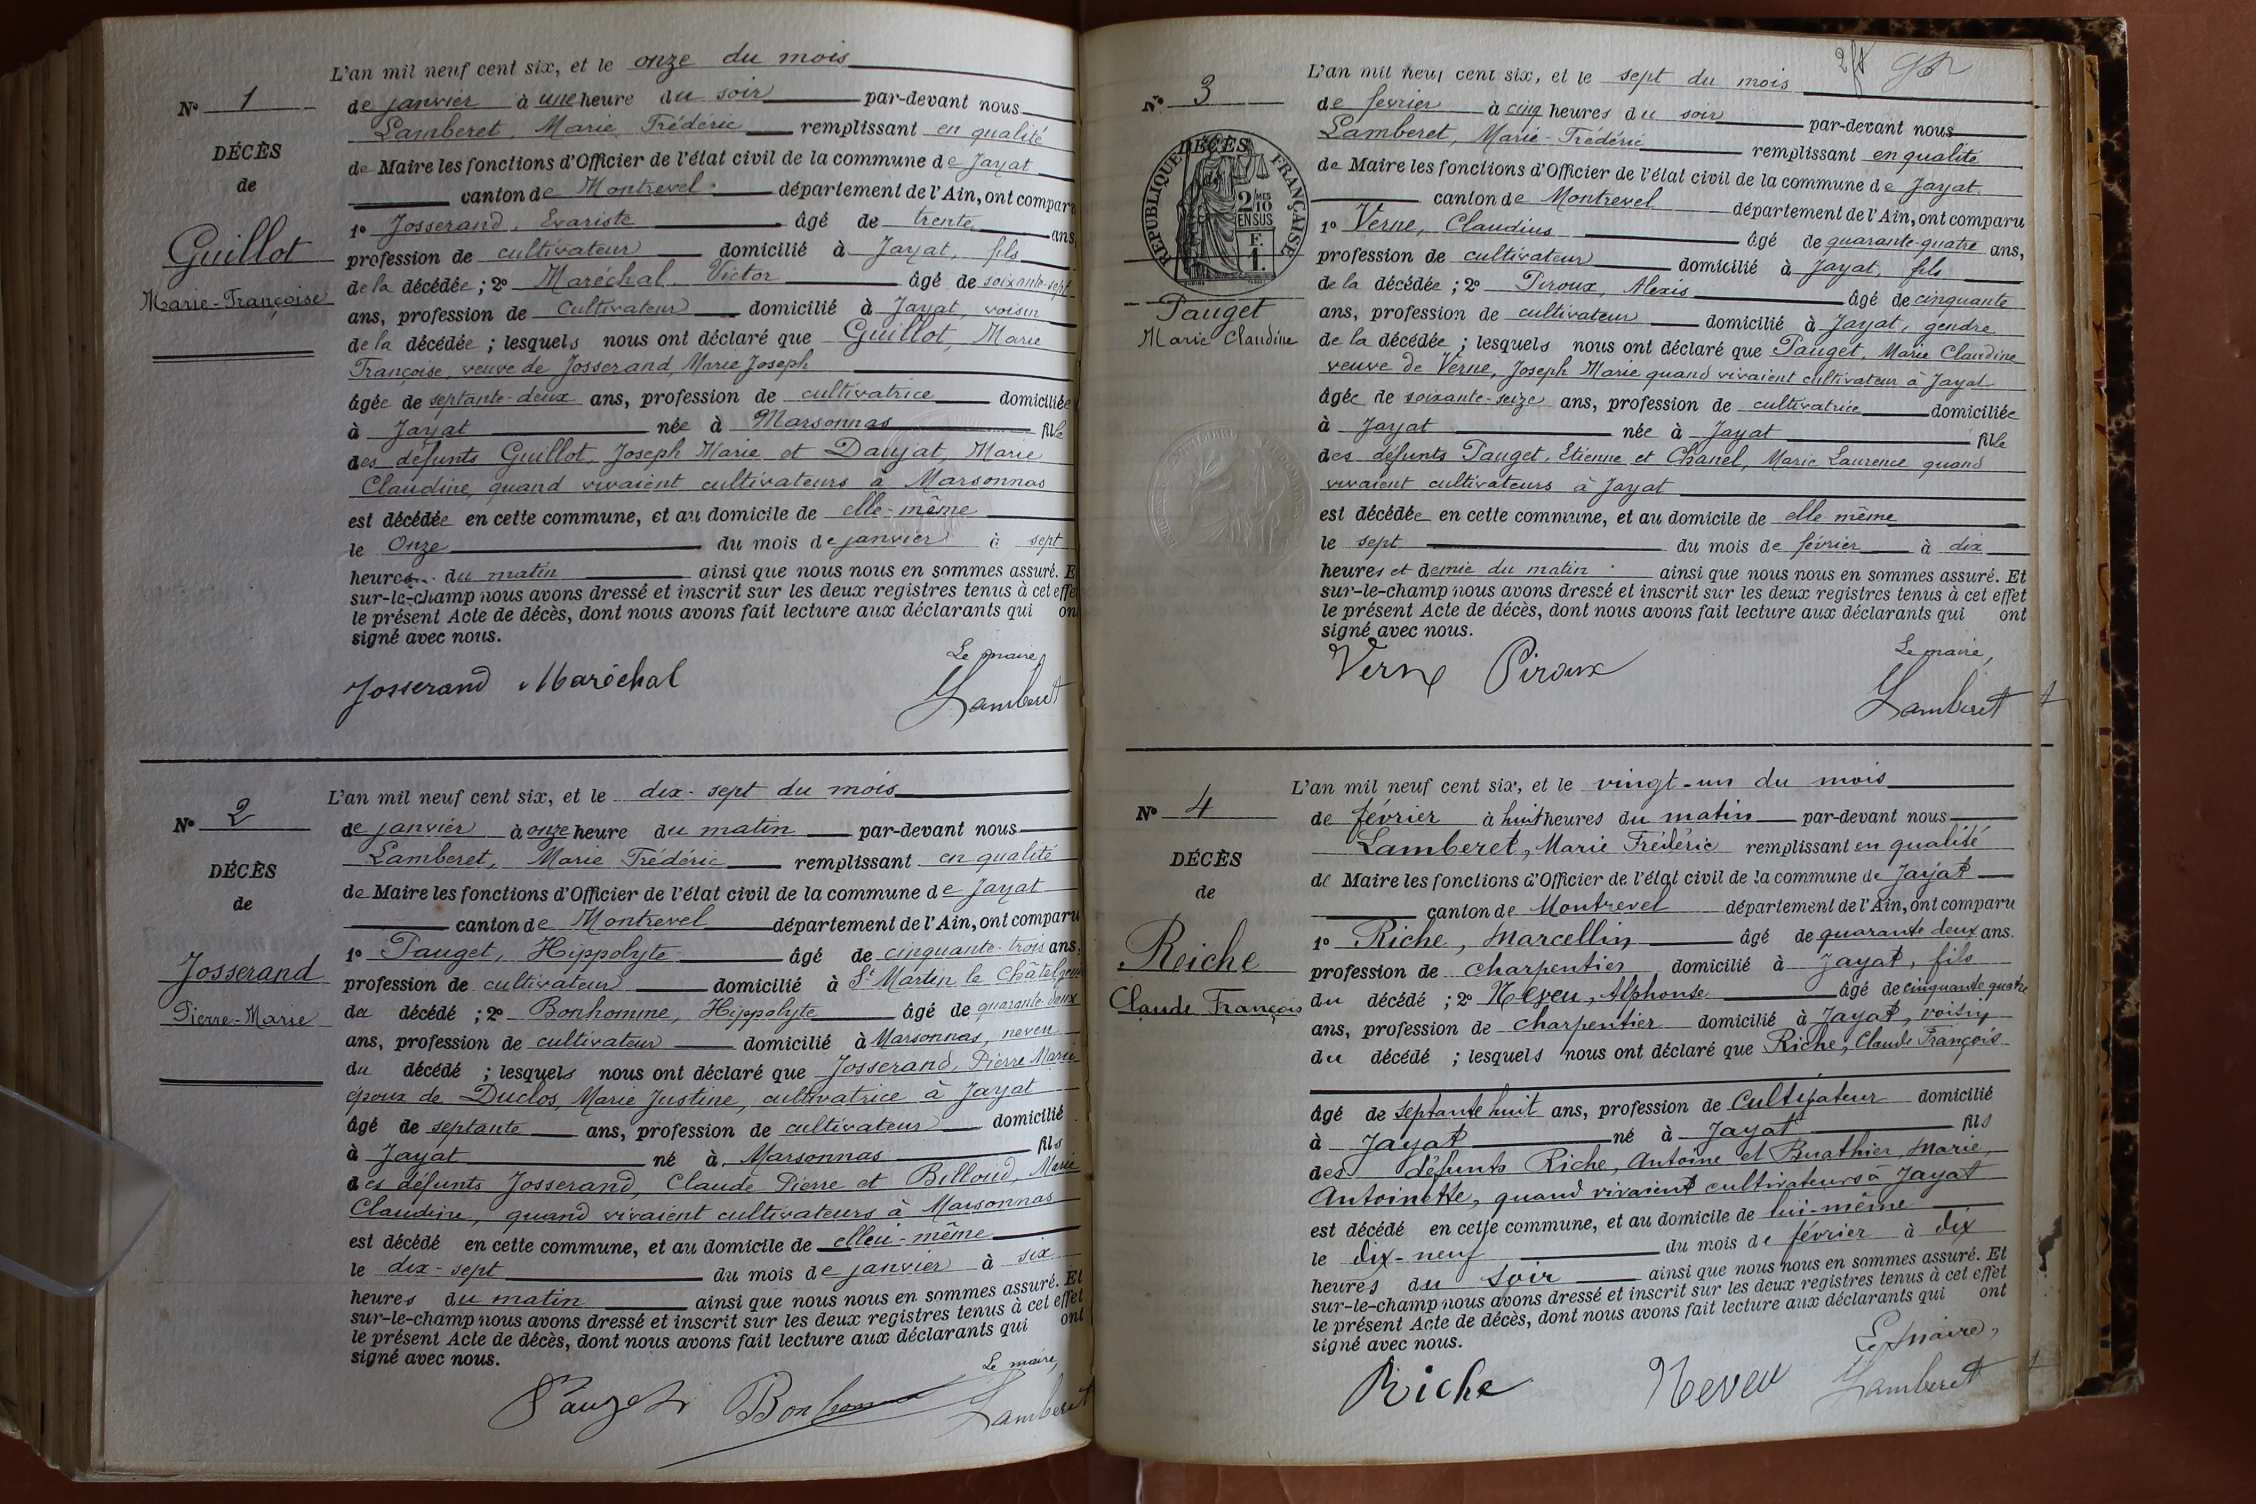 L'an mil neuf cent six, et le onze du mois
N° 1
de janvier à une heure du soir par-devant nous
Lamberet, Marie Frédéric remplissant en qualité
DÉCÈS
de Maire les fonctions d'Officier de l'état civil de la commune de Jayat
de
canton de Montrevel département de l'Ain, ont comparu
1° Josserand, Evariste âgé de trente ans,
Guillot
profession de cultivateur domicilié à Jayat, fils
Marie-Françoise
de la décédée ; 2° Maréchal, Victor âgé de soixante-sept
ans, profession de cultivateur domicilié à Jayat, voisin
de la décédée ; lesquels nous ont déclaré que Guillot, Marie
Françoise, veuve de Josserand, Marie Joseph
âgée de septante-deux ans, profession de cultivatrice domiciliée
à Jayat née à Marsonnas fille
des défunts Guillot, Joseph Marie et Daujat, Marie
Claudine, quand vivaient cultivateurs à Marsonnas
est décédée en cette commune, et au domicile de elle-même
le Onze du mois de janvier à sept
heures du matin ainsi que nous nous en sommes assuré. Et
sur-le-champ nous avons dressé et inscrit sur les deux registres tenus à cet effet
le présent Acte de décès, dont nous avons fait lecture aux déclarants qui ont
signé avec nous.
Le maire,
Josserand Maréchal Lamberet
L'an mil neuf cent six, et le dix-sept du mois
N° 2
de janvier à onze heure du matin par-devant nous
Lamberet, Marie Frédéric remplissant en qualité
DÉCÈS
de Maire les fonctions d'Officier de l'état civil de la commune de Jayat
de
canton de Montrevel département de l'Ain, ont comparu
1° Pauget, Hippolyte âgé de cinquante-trois ans,
Josserand
profession de cultivateur domicilié à St Martin le Châtel,
Pierre-Marie
du décédé ; 2° Bonhomme, Hippolyte âgé de quarante-deux
ans, profession de cultivateur domicilié à Marsonnas, neveu
du décédé ; lesquels nous ont déclaré que Josserand, Pierre Marie
époux de Duclos, Marie Justine, cultivatrice à Jayat
âgé de septante ans, profession de cultivateur domicilié
à Jayat né à Marsonnas fils
des défunts Josserand, Claude Pierre et Billoud, Marie
Claudine, quand vivaient cultivateurs à Marsonnas
est décédé en cette commune, et au domicile de lui-même
le dix-sept du mois de janvier à six
heures du matin ainsi que nous nous en sommes assuré. Et
sur-le-champ nous avons dressé et inscrit sur les deux registres tenus à cet effet
le présent Acte de décès, dont nous avons fait lecture aux déclarants qui ont
signé avec nous.
Le maire,
Pauget Bonhomme Lamberet
L'an mil neuf cent six, et le sept du mois
N° 3
de février à cinq heures du soir par-devant nous
Lamberet, Marie-Frédéric remplissant en qualité
DÉCÈS
RÉPUBLIQUE FRANÇAISE
2/10 MES
EN SUS
F.
1.
de Maire les fonctions d'Officier de l'état civil de la commune de Jayat.
canton de Montrevel département de l'Ain, ont comparu
1° Verne, Claudius âgé de quarante-quatre ans,
profession de cultivateur domicilié à Jayat, fils
de la décédée ; 2° Piroux, Alexis âgé de cinquante
Pauget
Marie Claudine
ans, profession de cultivateur domicilié à Jayat, gendre
de la décédée ; lesquels nous ont déclaré que Pauget, Marie Claudine
veuve de Verne, Joseph Marie quand vivaient cultivateur à Jayat
âgée de soixante-seize ans, profession de cultivatrice domiciliée
à Jayat née à Jayat fille
des défunts Pauget, Etienne et Chanel, Marie Laurence quand
vivaient cultivateurs à Jayat
est décédée en cette commune, et au domicile de elle même
le sept du mois de février à dix
heures et demie du matin ainsi que nous nous en sommes assuré. Et
sur-le-champ nous avons dressé et inscrit sur les deux registres tenus à cet effet
le présent Acte de décès, dont nous avons fait lecture aux déclarants qui ont
signé avec nous.
Le maire,
Verne Piroux Lamberet
L'an mil neuf cent six, et le vingt-un du mois
N° 4
de février à huit heures du matin par-devant nous
Lamberet, Marie Frédéric remplissant en qualité
DÉCÈS
de Maire les fonctions d'Officier de l'état civil de la commune de Jayat
de
canton de Montrevel département de l'Ain, ont comparu
1° Riche, Marcellin âgé de quarante deux ans.
Riche
profession de charpentier domicilié à Jayat, fils
Claude François
du décédé ; 2° Neveu, Alphonse âgé de cinquante quatre
ans, profession de charpentier domicilié à Jayat, voisin
du décédé ; lesquels nous ont déclaré que Riche, Claude François
âgé de septante huit ans, profession de Cultivateur domicilié
à Jayat né à Jayat fils
des défunts Riche, Antoine et Buathier, Marie,
Antoinette, quand vivaient cultivateurs à Jayat
est décédé en cette commune, et au domicile de lui-même
le dix-neuf du mois de février à dix
heures du soir ainsi que nous nous en sommes assuré. Et
sur-le-champ nous avons dressé et inscrit sur les deux registres tenus à cet effet
le présent Acte de décès, dont nous avons fait lecture aux déclarants qui ont
signé avec nous.
Le maire,
Riche Neveu Lamberet